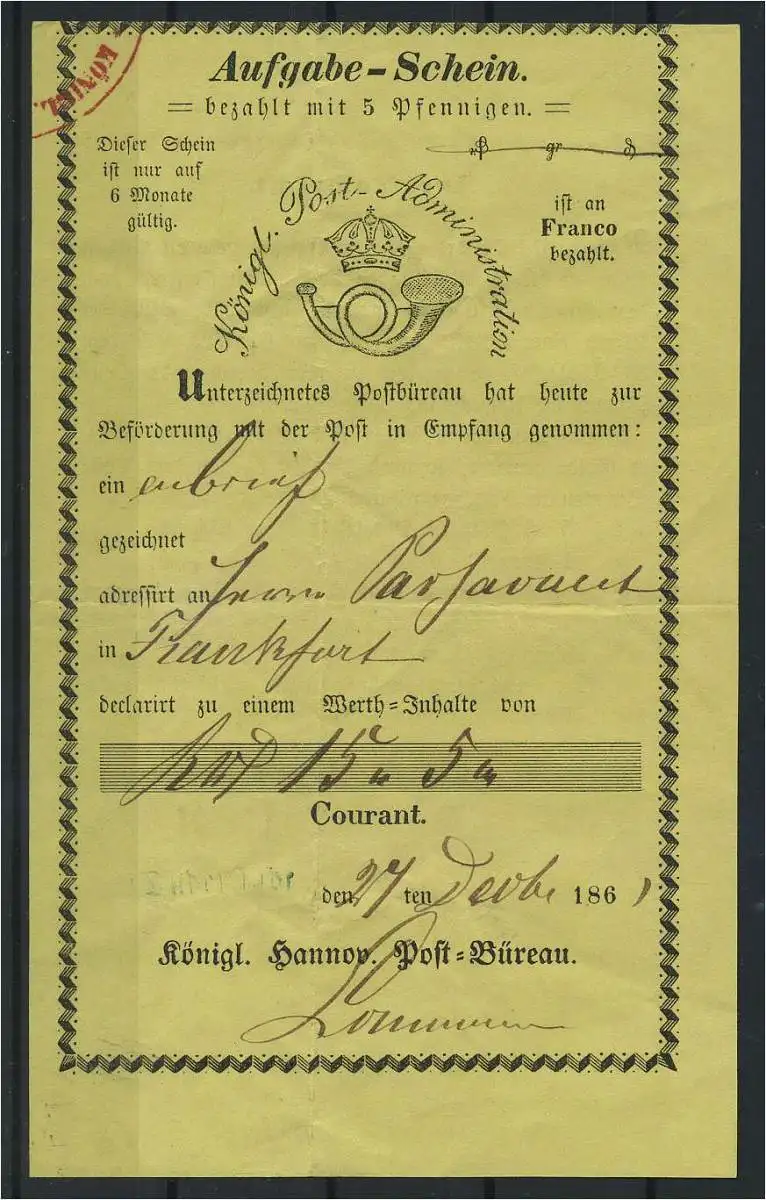 KÖNIGL.
Aufgabe-Schein.
= bezahlt mit 5 Pfennigen. =
Dieser Schein
ist nur auf
6 Monate
gültig.
gr
ist an
Franco
bezahlt.
Königl. Post-Administration
Unterzeichnetes Postbüreau hat heute zur
Beförderung mit der Post in Empfang genommen:
ein
gezeichnet
adressirt an Herrn Passavant
in Frankfort
declarirt zu einem Werth-Inhalte von
15 5
Courant.
den 27 ten Decbr 1861
Königl. Hannov. Post-Büreau.